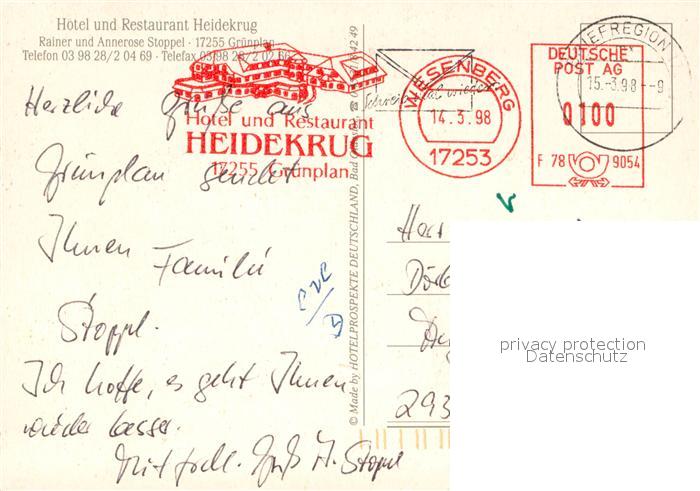 Hotel und Restaurant Heidekrug
Rainer und Annerose Stoppel · 17255 Grünplan
Telefon 03 98 28/2 04 69 · Telefax 03 98 28/2 02 66
Hotel und Restaurant
HEIDEKRUG
17255 Grünplan
WESENBERG
14.3.98
17253
DEUTSCHE
POST AG
0100
F 78 9054
IEFREGION
15.-3.98--9
Schreib mal wieder
© Made by HOTELPROSPEKTE DEUTSCHLAND, Bad
Herzliche Grüße aus
Grünplan sendet
Ihnen Familie
Stoppl.
Ich hoffe, es geht Ihnen
wieder besser.
Mit frdl. Gruß A. Stoppl
Herr
293
privacy protection
Datenschutz